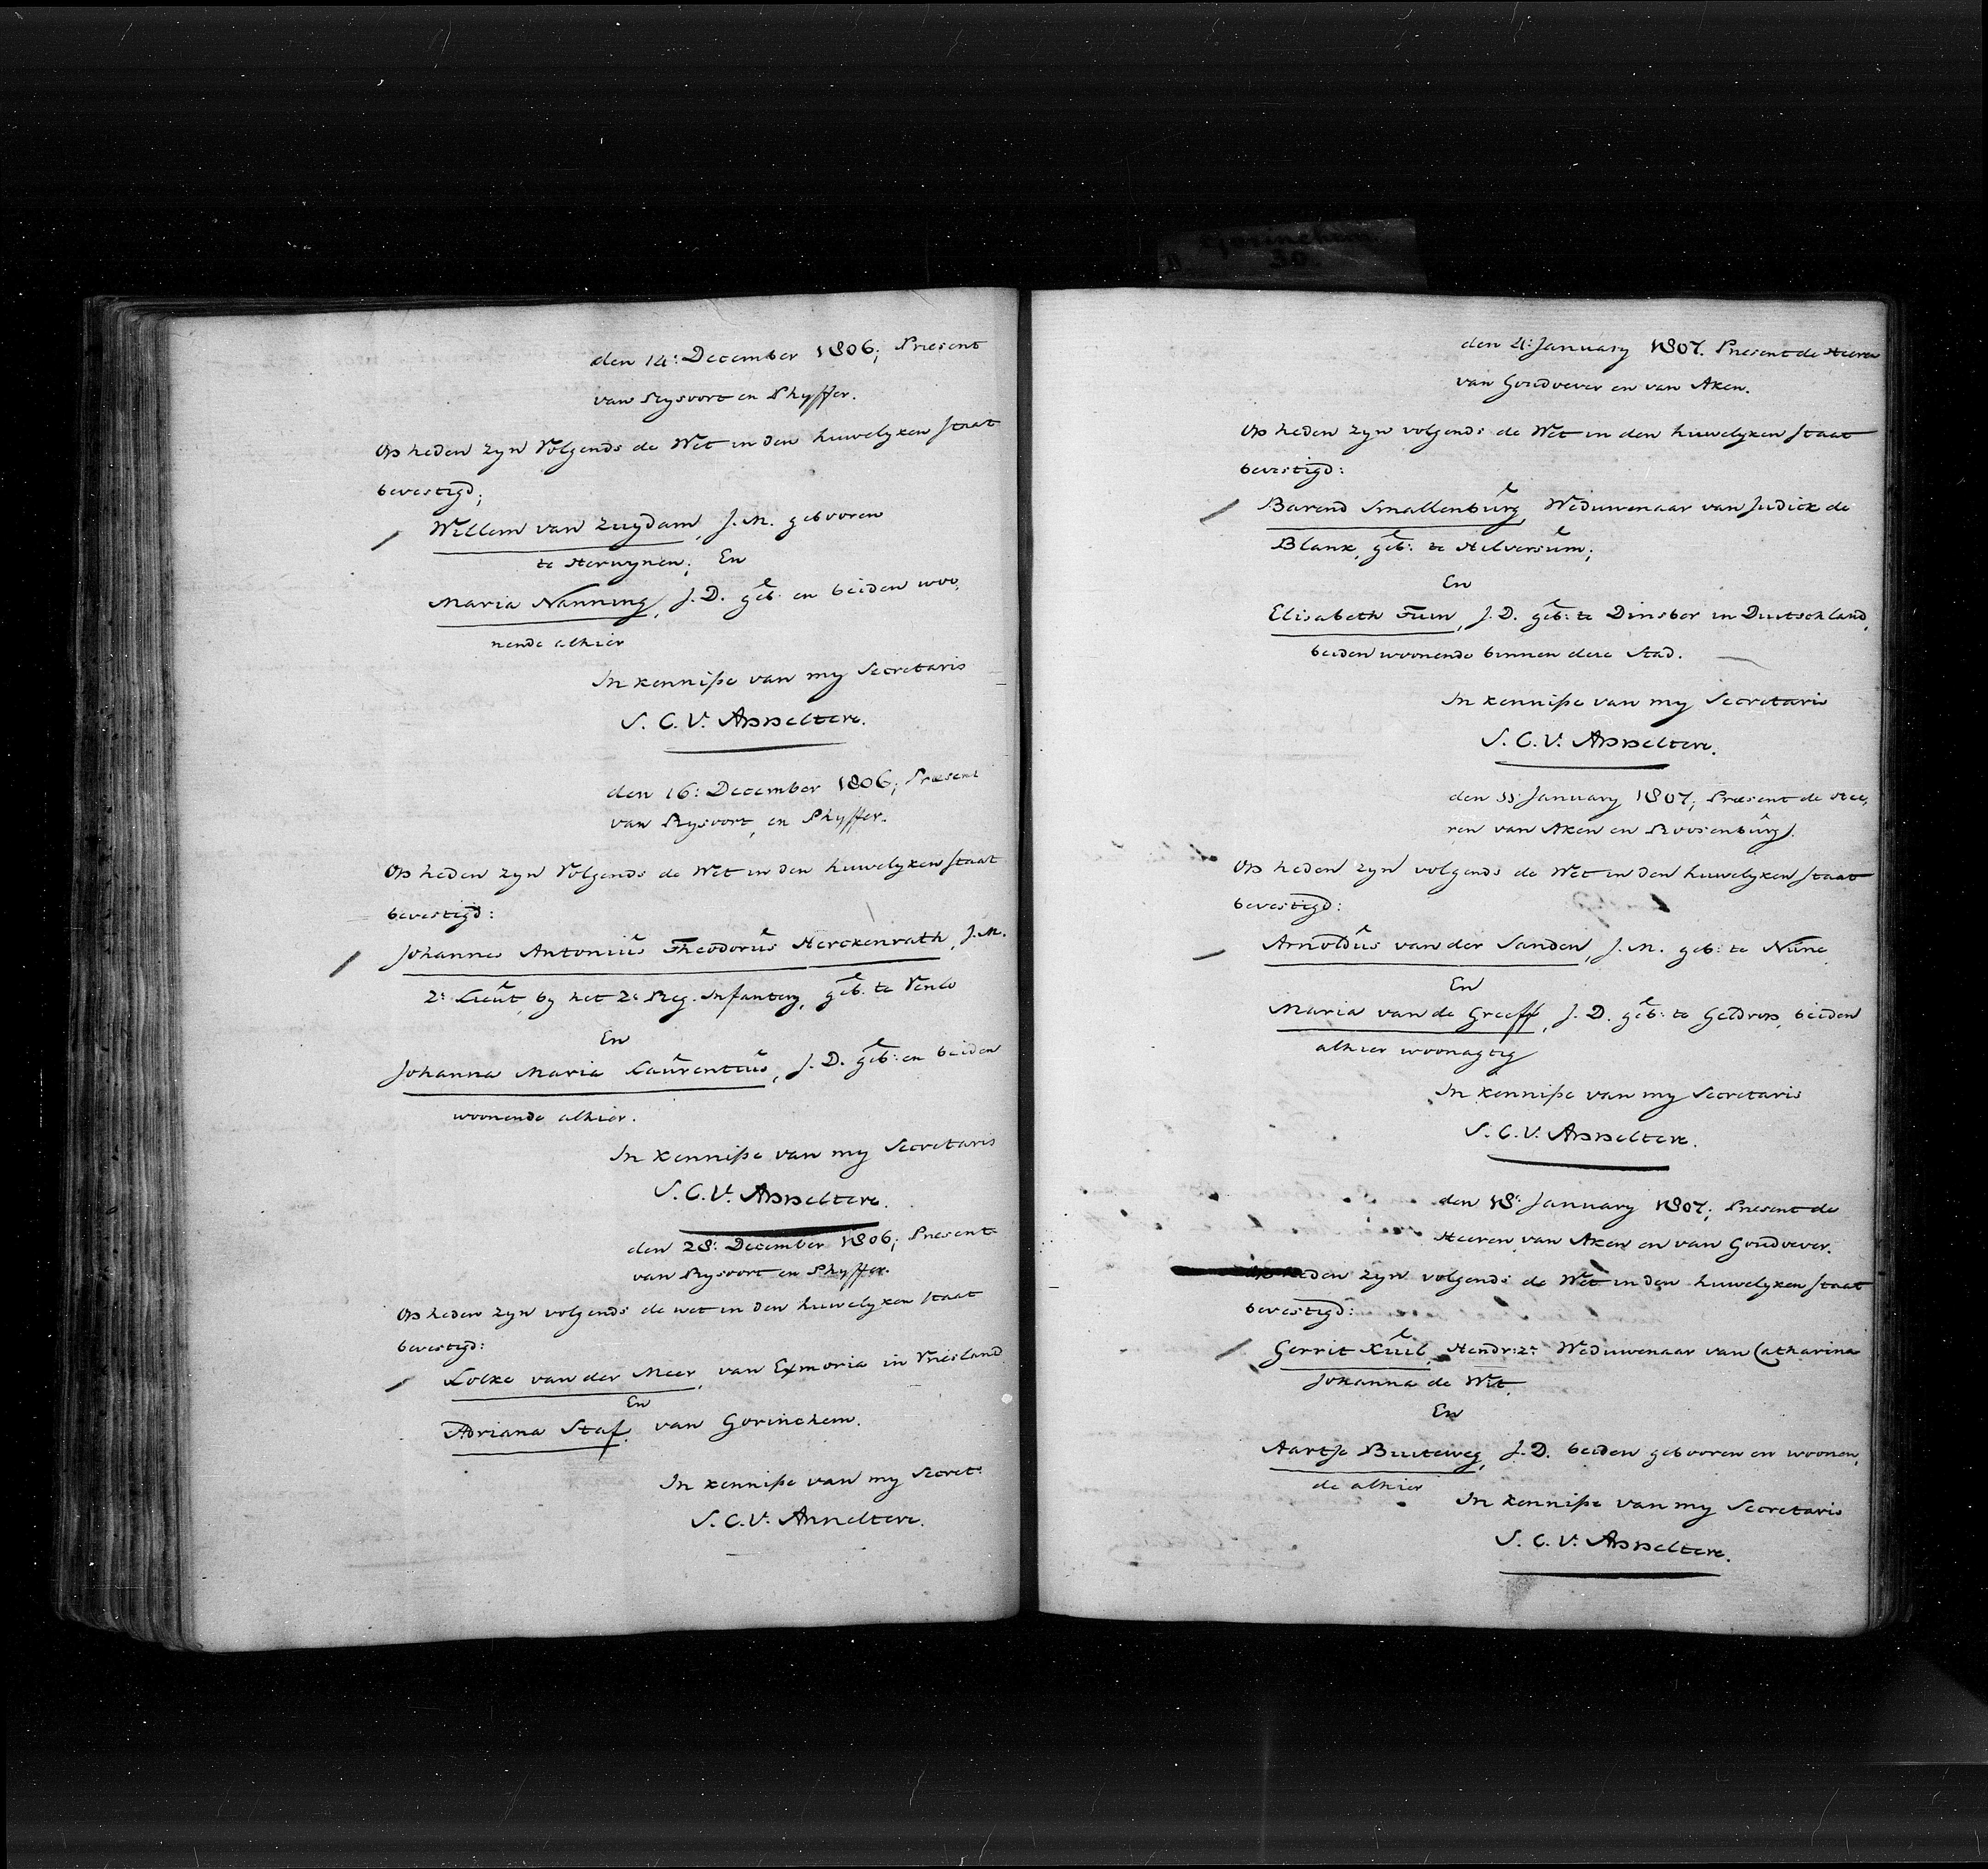 Gorinchem
30.
den 14: December 1806; Present
van Rysoort en Phyffer.
Op heden zyn Volgends de Wet in den huwelyken staat
bevestigd;
Willem van Zuydam, J.M. gebooren
te Herwynen; En
Maria Nanning, J.D. geb: en beiden woo,
nende alhier
In kennisse van my Secretaris
S. C. V. Appeltere.
den 16: December 1806; Present
van Rysoort, en Phyffer.
Op heden zyn Volgends de Wet in den huwelyken staat
bevestigd:
Johannes Antonius Theodorus Herckenrath, J.M.
2e Lieut, by het 2e Reg. Infantery, geb. te Venlo
En
Johanna Maria Laurentius, J.D. geb: en beiden
woonende alhier.
In kennisse van my Secretaris
S. C. V. Appeltere.
den 28: December 1806; Present
van Rysoort en Phyffer.
Op heden zyn volgends de wet in den huwelyken staat
bevestigd:
Lolke van der Meer, van Exmoria in Vriesland
En
Adriana Staf. van Gorinchem.
In kennisse van my Secret:
S. C. V. Appeltere.
den 4: January 1807. Present de Heeren
van Goudoever en van Aken.
Op heden zyn volgends de Wet in den huwelyken staat
bevestigd:
Barend Smallenburg, Weduwenaar van Judick de
Blank, geb: te Hilversum;
En
Elisabeth Fuin, J.D. geb: te Dinsber in Duitschland,
beiden woonende binnen deze Stad.
In kennisse van my Secretaris
S. C. V. Appeltere.
den 11: January 1807; Present de Hee,
ren van Aken en Roosenburg.
Op heden zyn volgends de Wet in den huwelyken staat
bevestigd:
Arnoldus van der Sanden, J.M. geb: te Nune,
En
Maria van de Greeff, J.D. geb: te Geldrop, beiden
alhier woonagtig
In kennisse van my Secretaris
S. C. V. Appeltere.
den 18: January 1807; Present de
Heeren van Aken en van Goudoever.
Op heden zyn volgends de Wet in den huwelyken staat
bevestigd:
Gerrit Kuil, Hendr:zn Weduwenaar van Catharina
Johanna de Wit,
En
Aartje Buiteweg, J.D. beiden gebooren en woonen,
de alhier
In kennisse van my Secretaris
S. C. V. Appeltere.